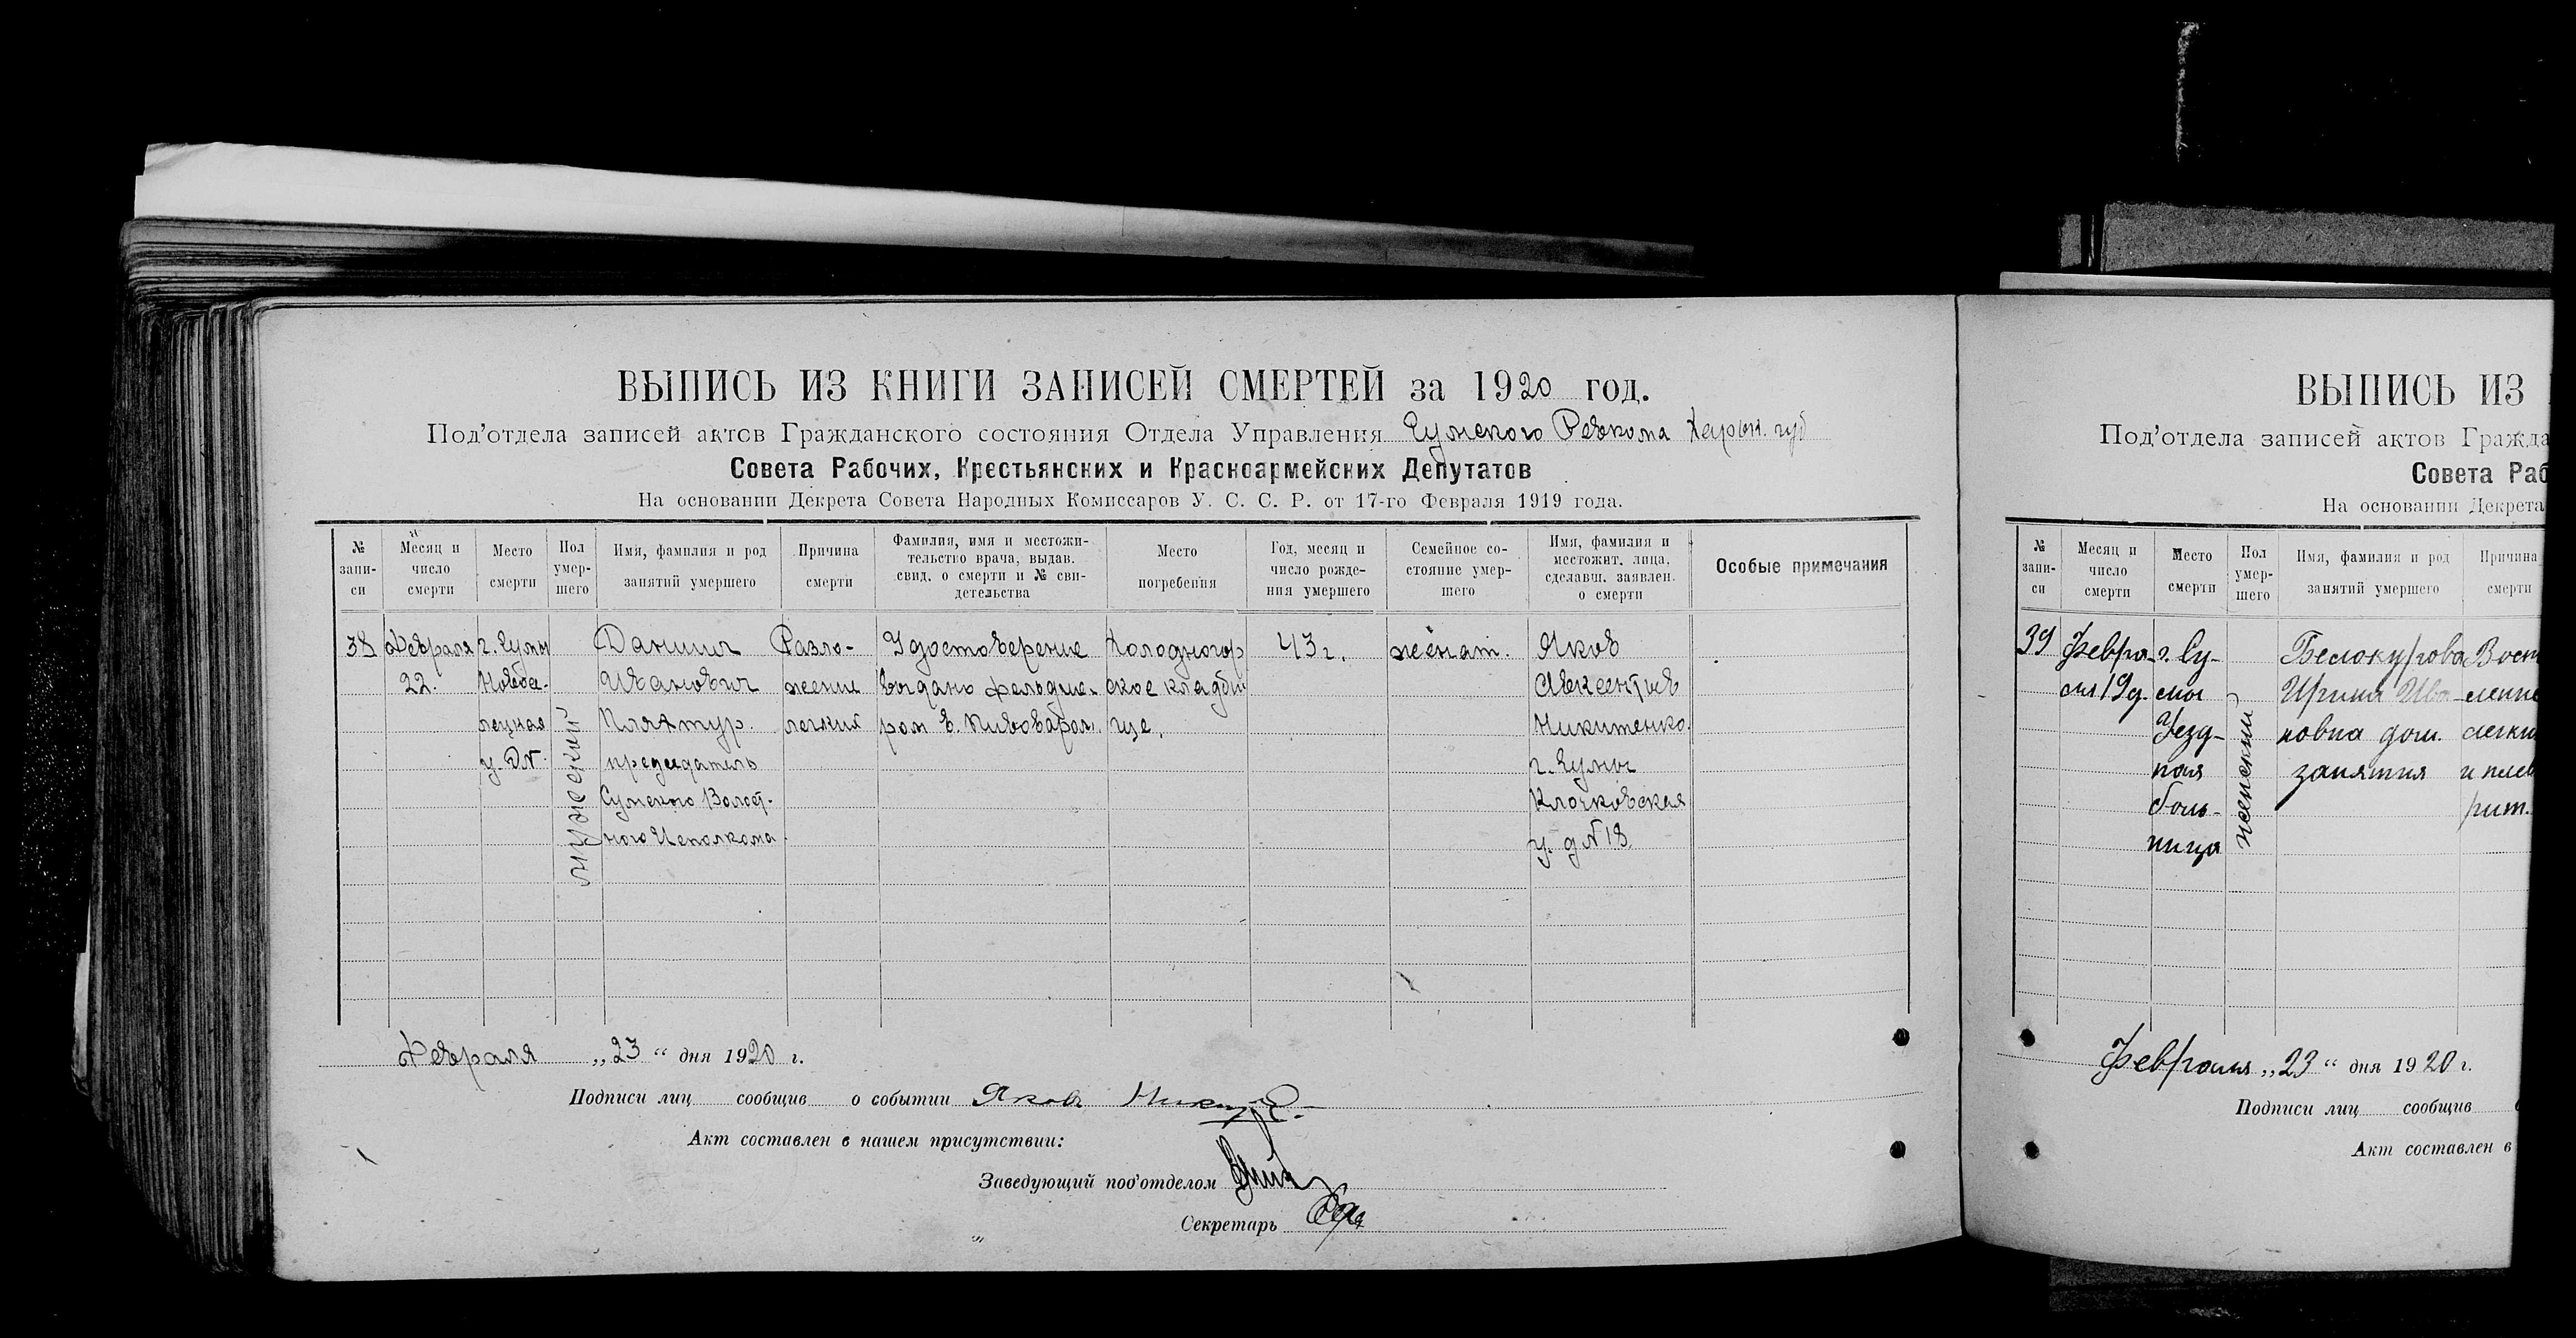 ВЫПИСЬ ИЗ КНИГИ ЗАПИСЕЙ СМЕРТЕЙ за 1920 год.
Под'отдела записей актов Гражданского состояния Отдела Управления Сумского Ревкома Харьк. губ
Совета Рабочих, Крестьянских и Красноармейских Депутатов
На основании Декрета Совета Народных Комиссаров У. С. С. Р. от 17-го Февраля 1919 года.
№ запи-си
Месяц и число смерти
Место смерти
Пол умер-шего
Имя, фамилия и род занятий умершего
Причина смерти
Фамилия, имя и местожи-тельство врача, выдав. свид. о смерти и № сви-детельства
Место погребения
Год, месяц и число рожде-ния умершего
Семейное со-стояние умер-шего
Имя, фамилия и местожит. лица, сделавш. заявлен. о смерти
Особые примечания
38
Февраля
22.
г. Сумы
у. д№
мужеский
Даниил
Иванович
председатель
Сумского Волост-
ного Исполкома
Разло-
жение
легких
Удостоверение
выдано фельдше-
ром В. Пивоваров.
Холодногор
ское кладби
ще.
43 г.
женат.
Яков
Авксентьев
Никитенко.
г. Сумы
Клочковская
у. д №18
Февраля „23“ дня 1920 г.
Подписи лиц сообщив о событии Яков
Акт составлен в нашем присутствии:
Заведующий под'отделом
Секретарь
ВЫПИСЬ ИЗ
Под'отдела записей актов Гражда
Совета Раб
На основании Декрета
№ запи-си
Месяц и число смерти
Место смерти
Пол умер-шего
Имя, фамилия и род занятий умершего
Причина смерти
39
Февра-
ля 19 д.
г. Су-
мы
Уезд-
ная
боль-
ница
женский
Белокурова
Ирина Ива-
новна дом.
занятия
Восп
ление
легки
и плев
рит.
Февраля „23“ дня 1920 г.
Подписи лиц сообщив
Акт составлен в